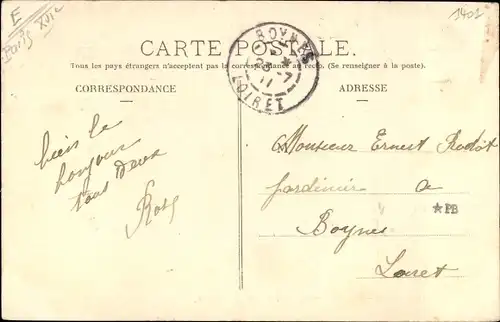 E
Paris XVIe
1402
CARTE POSTALE.
Tous les pays étrangers n'acceptent pas la correspondance au recto. (Se renseigner à la poste.)
CORRESPONDANCE
ADRESSE
BOYNES
LOIRET
bien le
bonjour
tout deux
Monsieur Ernest
Jardinier a
★PB
Boynes
Loiret